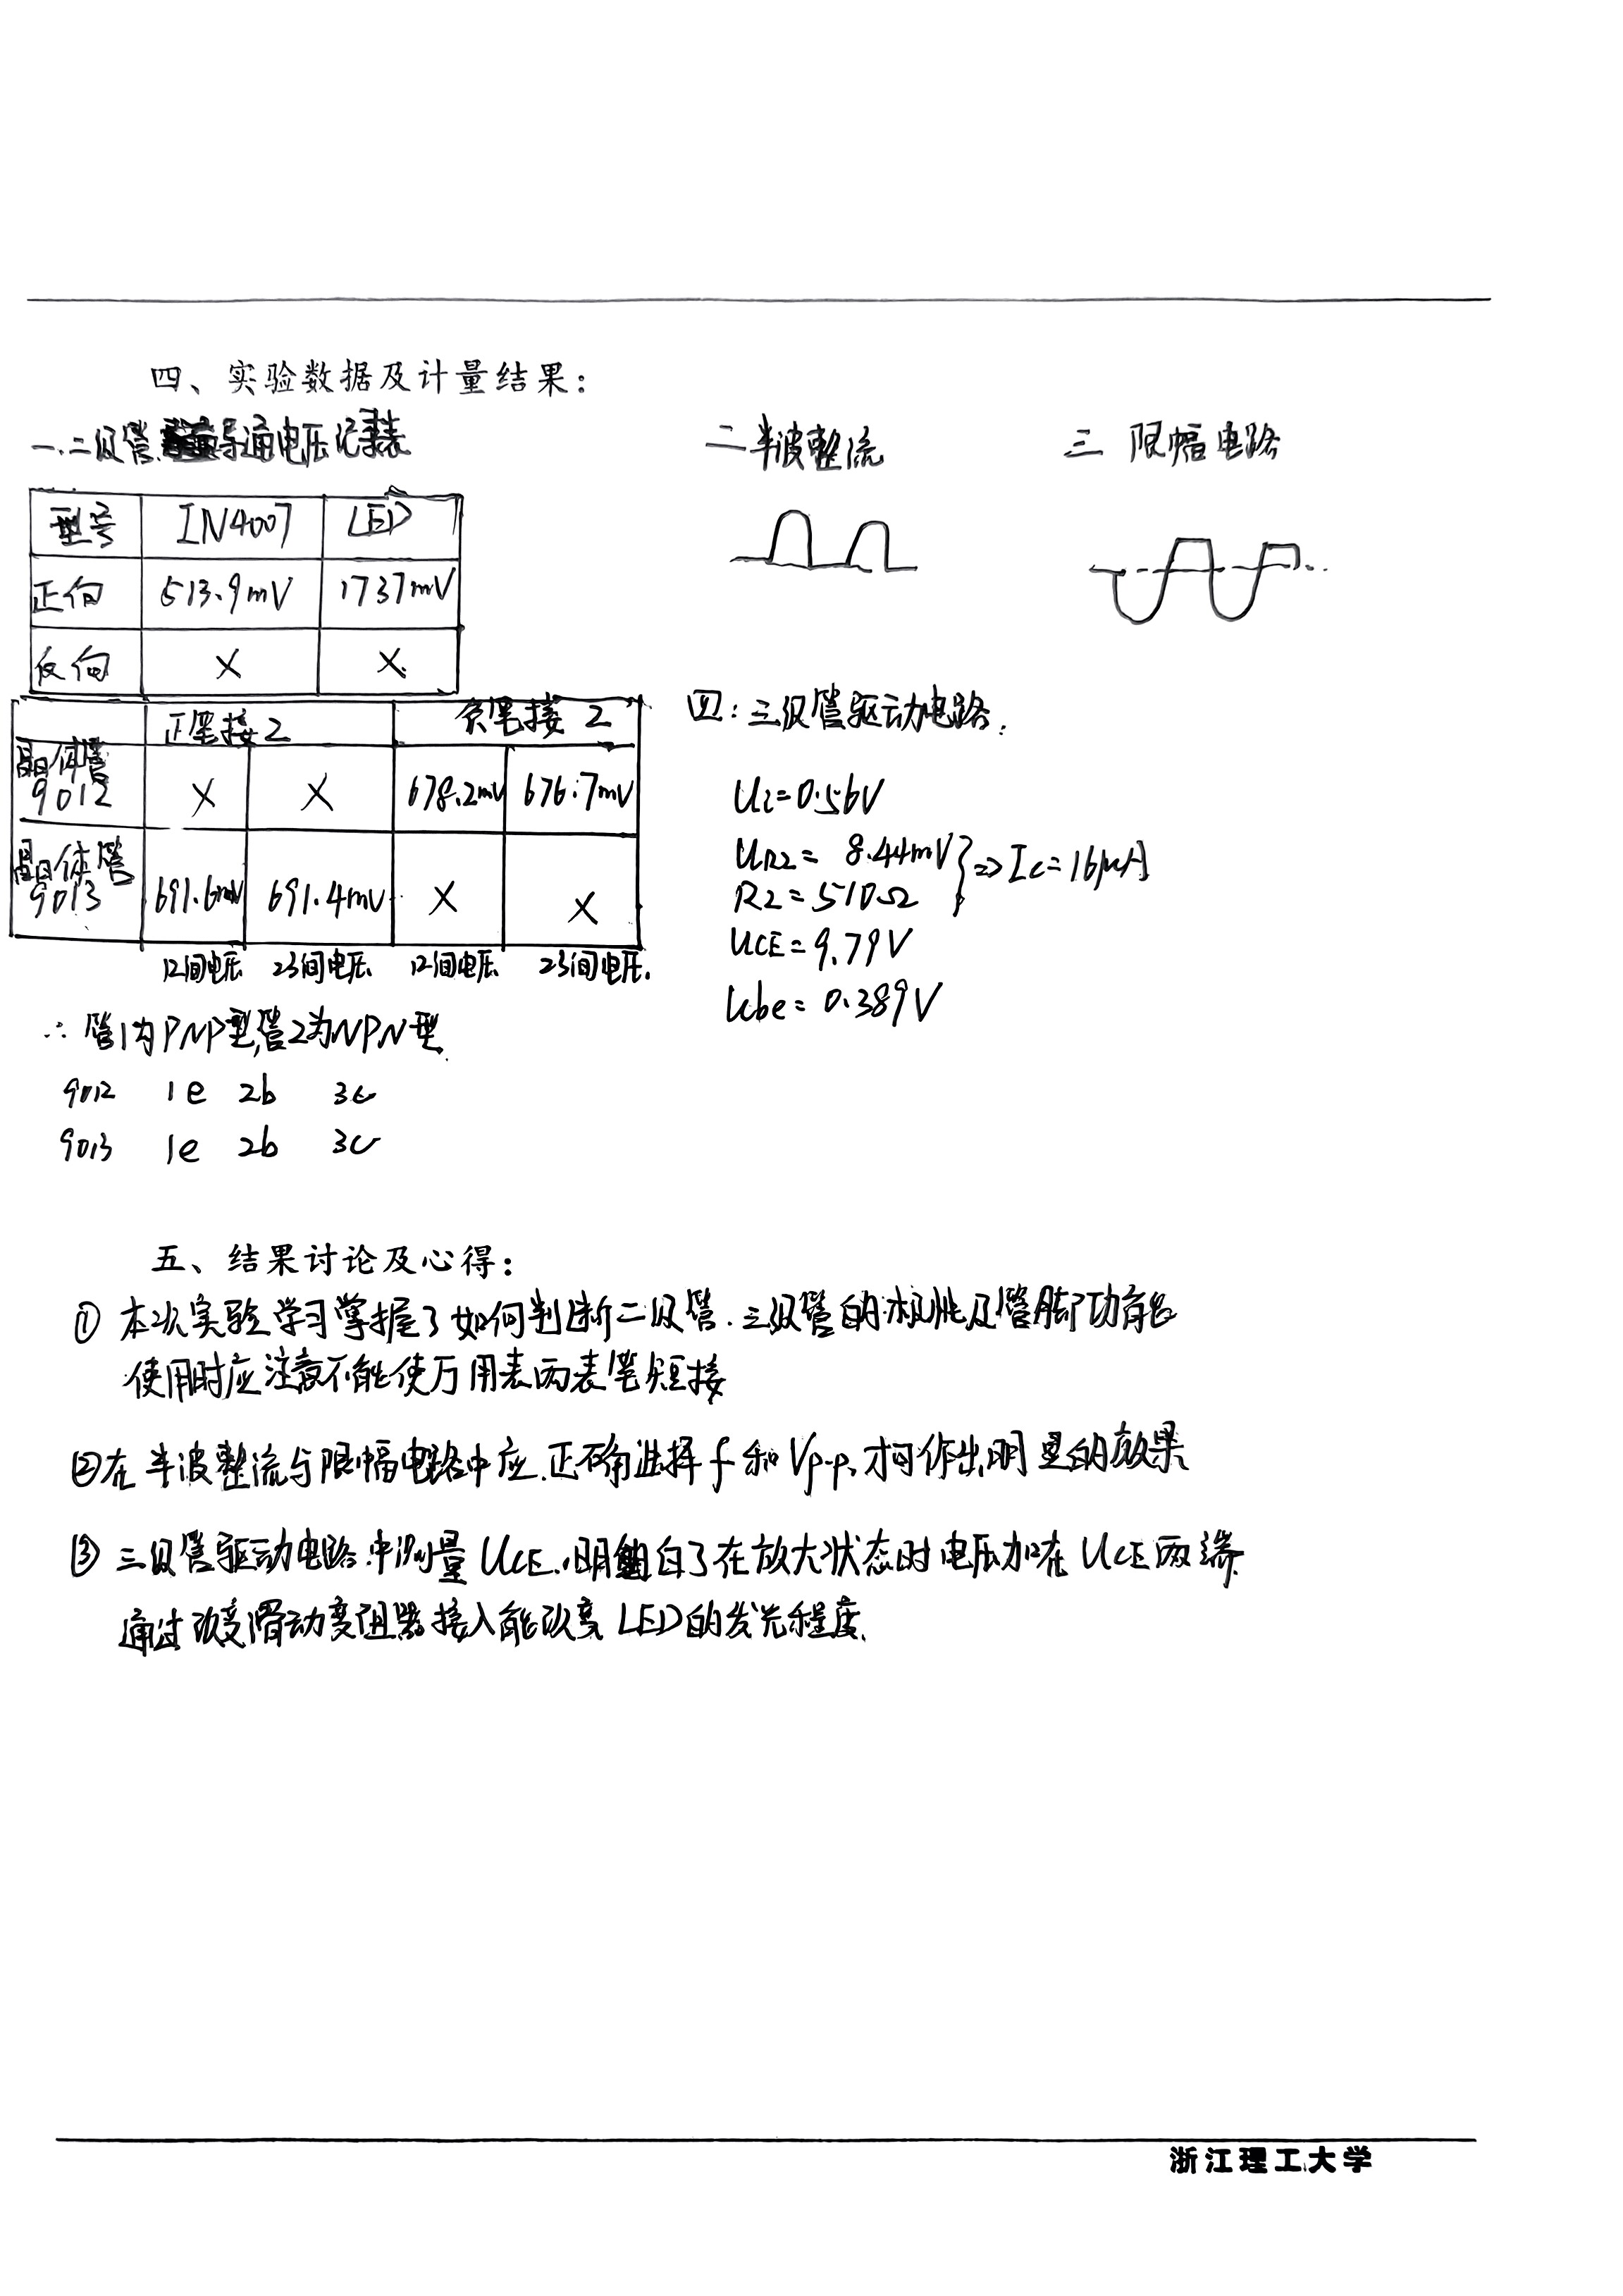 四、实验数据及计量结果：
一.二极管导通电压记录表
型号 IN4007 LED
正向 513.9mV 1737mV
反向 × ×
正笔接2 负笔接2
晶体管9012 × × 678.2mV 676.7mV
晶体管9013 691.6mV 691.4mV × ×
12间电压 23间电压 12间电压 23间电压.
∴ 管1为PNP型,管2为NPN型.
9012 1e 2b 3c
9013 1e 2b 3c
二 半波整流
三 限幅电路
四：三级管驱动电路.
Ui=0.56V
UR2= 8.44mV
R2=510Ω
}=>Ic=16μA
UCE=9.79V
Ube=0.389V
五、结果讨论及心得：
① 本次实验学习掌握了如何判断二级管.三级管的极性及管脚功能
使用时应注意不能使万用表两表笔短接
②在半波整流与限幅电路中应.正确选择f和Vp-p.才可作出明显的效果
③ 三级管驱动电路.中测量UCE.明白了在放大状态时电压加在UCE两端.
通过改变滑动变阻器接入能改变LED的发光程度.
浙江理工大学